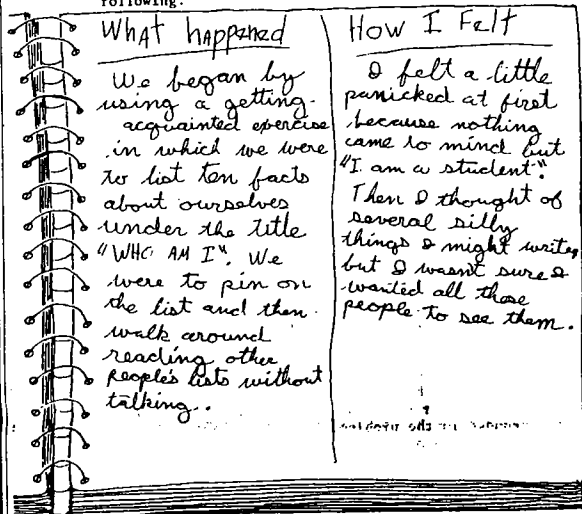 following.
What happened
We began by
using a getting-
acquainted exercise
in which we were
to list ten facts
about ourselves
under the title
"WHO AM I". We
were to pin on
the list and then
walk around
reading other
people's lists without
talking.
How I Felt
I felt a little
panicked at first
because nothing
came to mind but
"I am a student".
Then I thought of
several silly
things I might write,
but I wasn't sure I
wanted all those
people to see them.